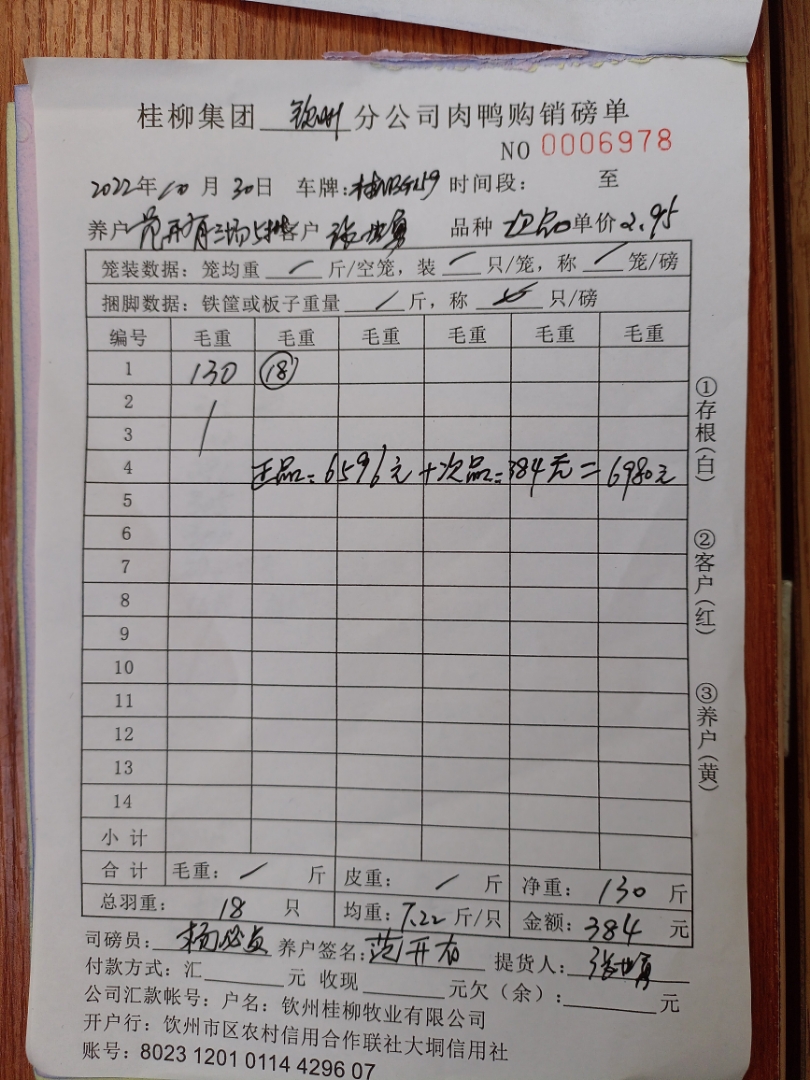 桂柳集团 钦州 分公司肉鸭购销磅单
NO 0006978
2022年10月30日 车牌: 时间段: 至
养户 范开有三场 客户 张世勇 品种 次品 单价 2.95
笼装数据:笼均重 / 斤/空笼,装 / 只/笼,称 / 笼/磅
捆脚数据:铁筐或板子重量 / 斤,称 只/磅
编号 毛重 毛重 毛重 毛重 毛重 毛重
1 130 18
2 /
3
4 正品=6596元+次品=384元=6980元
5
6
7
8
9
10
11
12
13
14
小计
合计 毛重: / 斤 皮重: / 斤 净重: 130 斤
总羽重: 18 只 均重: 7.22 斤/只 金额: 384 元
司磅员: 养户签名: 范开有 提货人: 张世勇
付款方式:汇 元 收现 元欠(余): 元
公司汇款帐号:户名:钦州桂柳牧业有限公司
开户行:钦州市区农村信用合作联社大垌信用社
账号:8023 1201 0114 4296 07
①存根(白)
②客户(红)
③养户(黄)